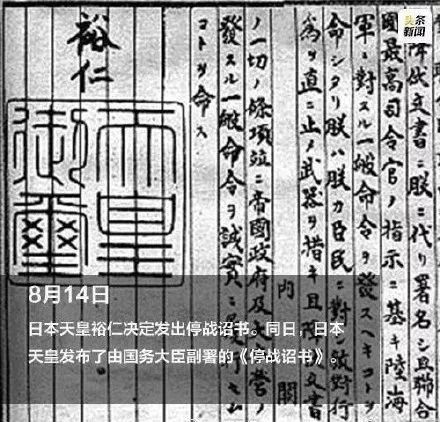 头条
新闻
降伏文書ニ朕ニ代リ署名シ且聯合
國最高司令官ノ指示ニ基キ陸海
軍ニ對スル一般命令ヲ發スヘキコトヲ
命シタリ朕ハ朕カ臣民ニ對シ敵對行
為ヲ直ニ止メ武器ヲ措キ且降伏文書
ノ一切ノ條項竝ニ帝國政府及
發スル一般命令ヲ誠實ニ
コトヲ命ス
內閣
裕仁
天皇
御璽
8月14日
日本天皇裕仁决定发出停战诏书。同日,日本
天皇发布了由国务大臣副署的《停战诏书》。